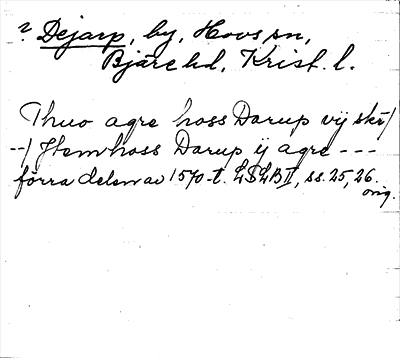 ? Dejarp, by, Hovs sn,
Bjäre hd, Krist. l.
Thuo agre hoss Darup vij skr/
--/ Jtem hoss Darup ij agre ---
förra delen av 1570-t. LSLB II, ss. 25, 26.
orig.